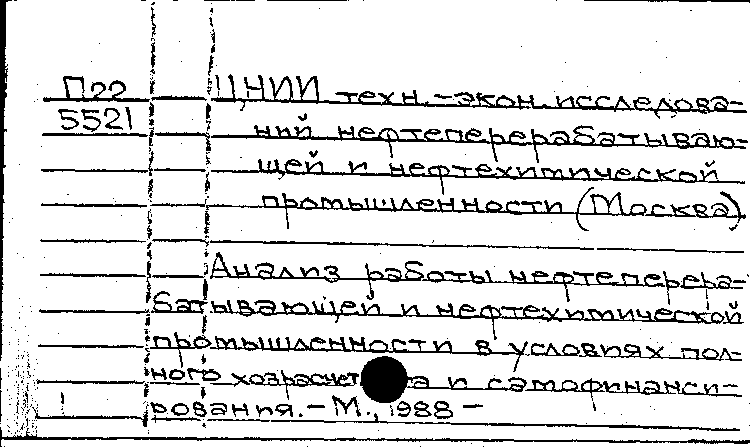 П22 ЦНИИ техн.-экон. исследова-
5521 ний нефтеперерабатываю-
щей и нефтехимической
промышленности (Москва)
Анализ работы нефтеперера-
батывающей и нефтехимической
промышленности в условиях пол-
ного хозрасчета и самофинанси-
рования. - М., 1988 -